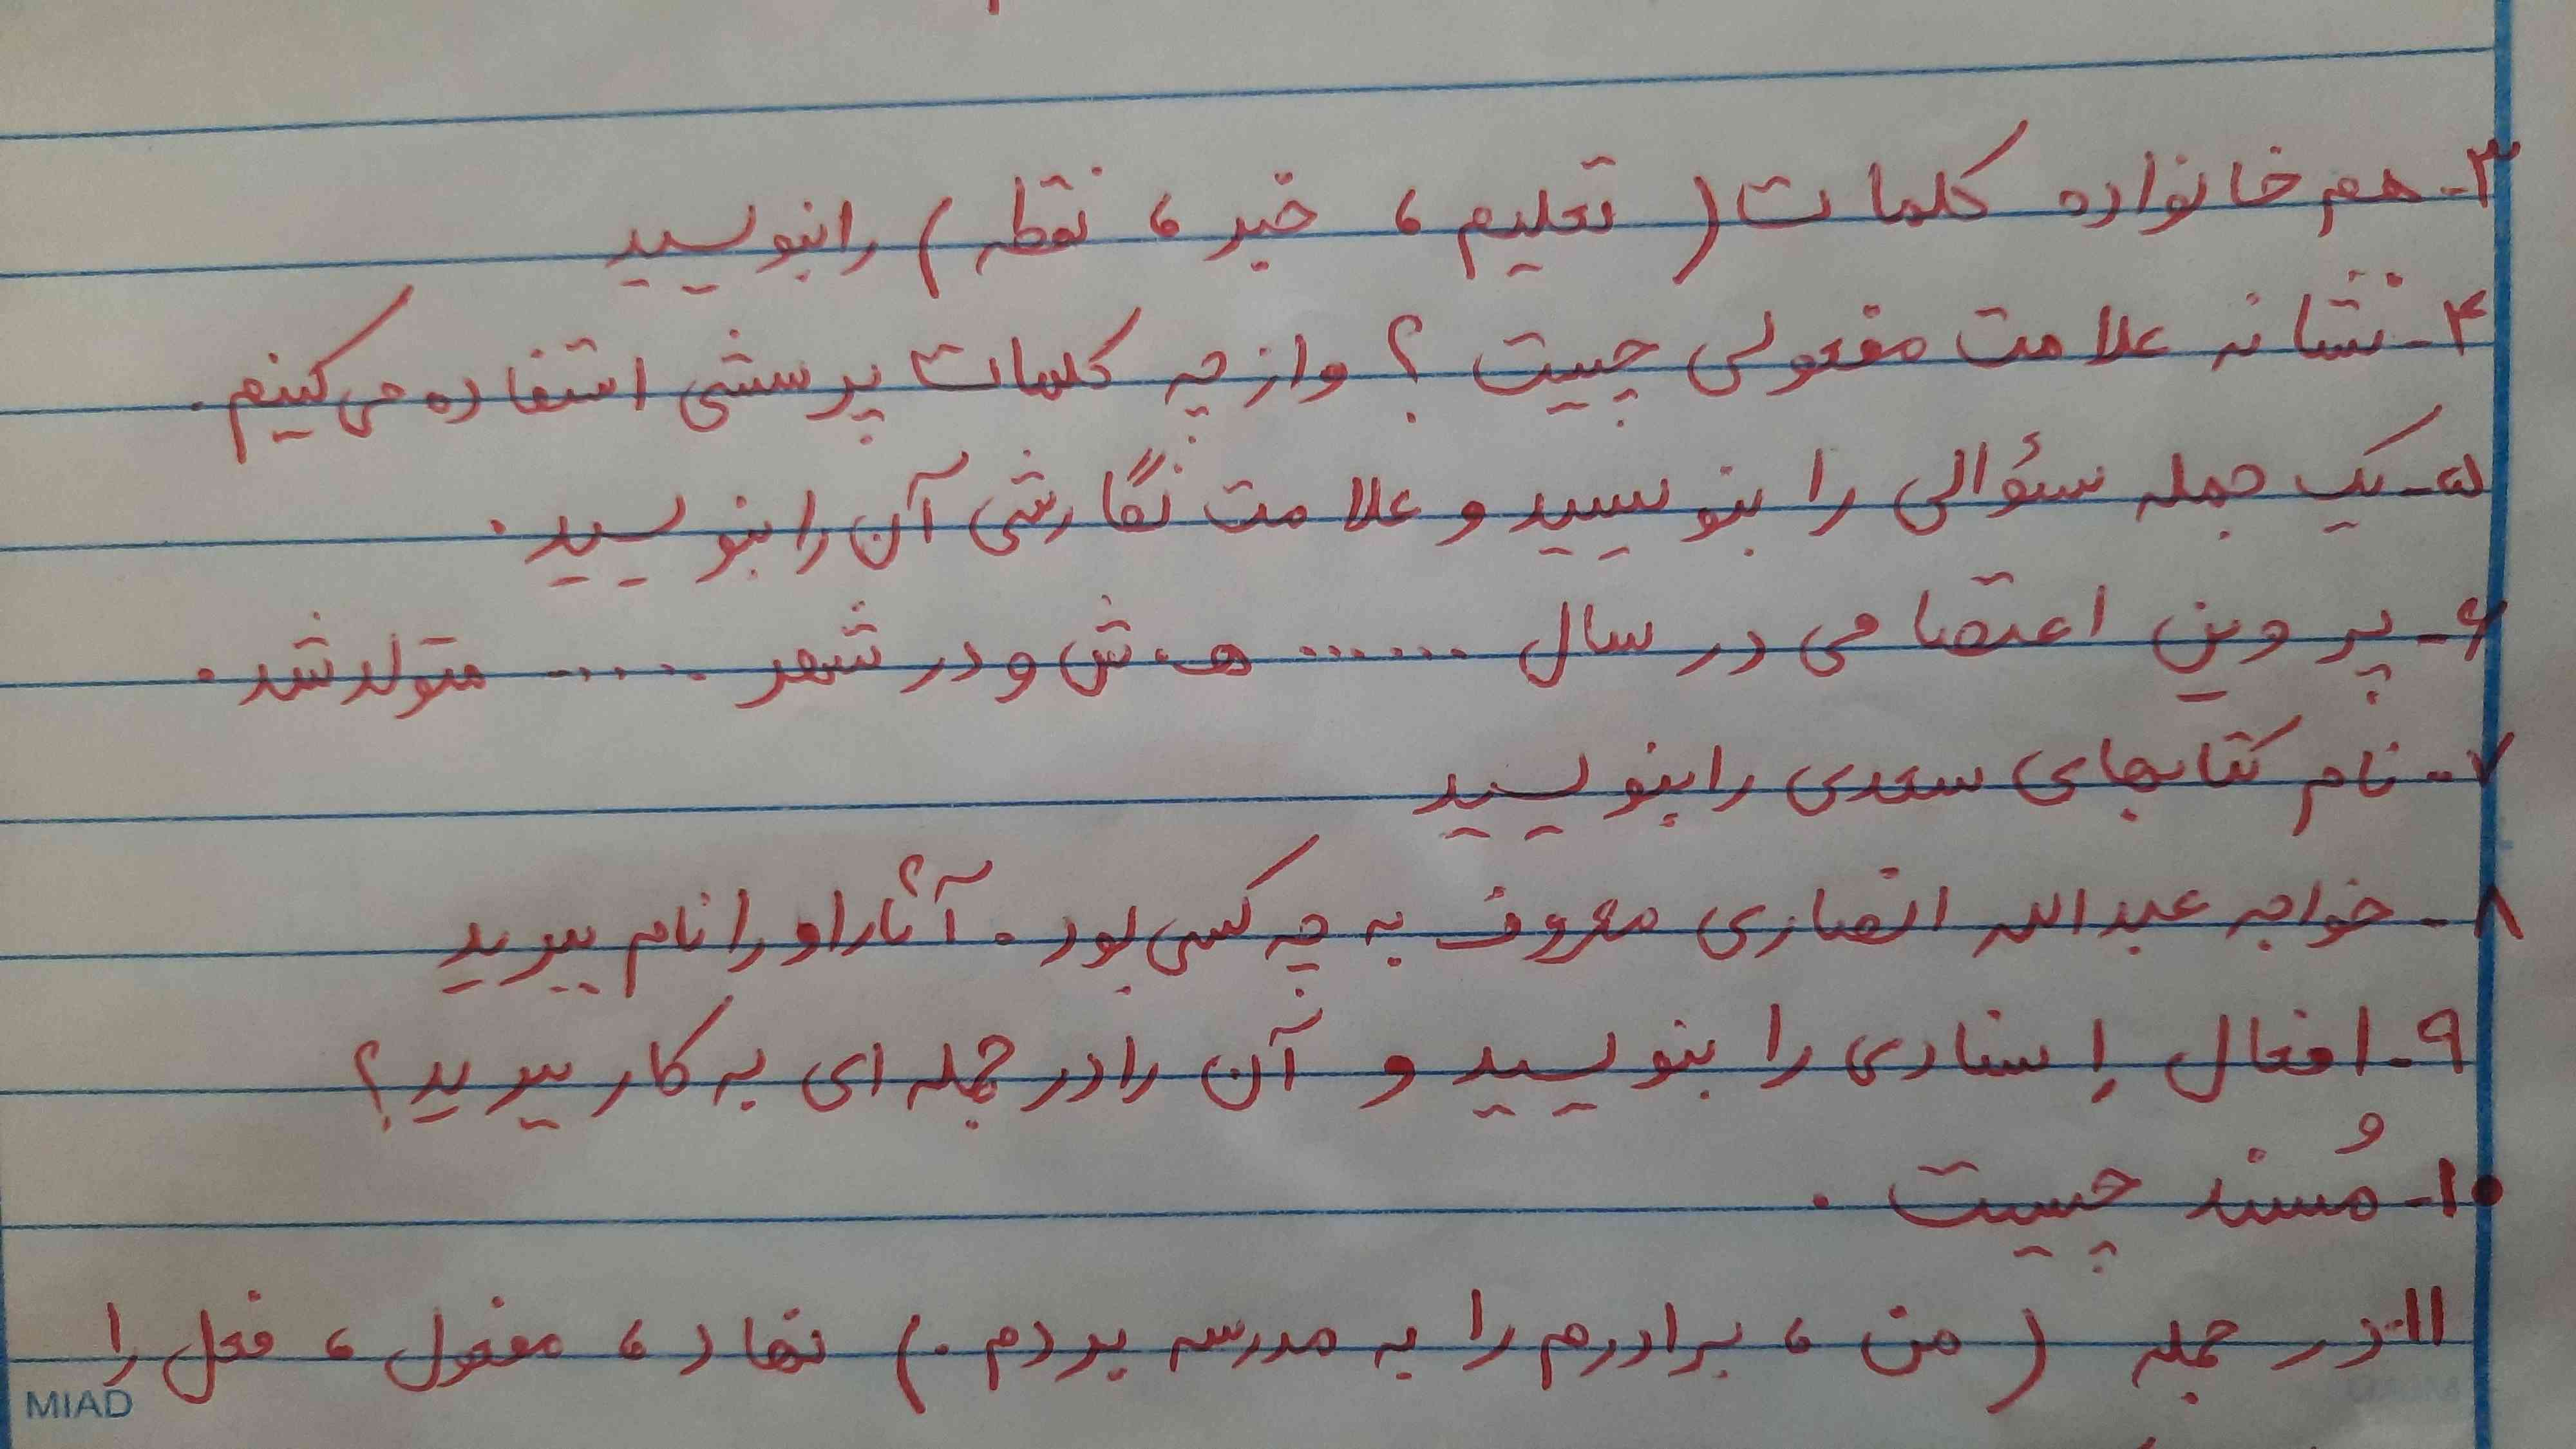 ۳- هم خانواده کلمات ( تعلیم ، خبر ، نقطه ) را بنویسید
۴- نشانه علامت مفعولی چیست ؟ و از چه کلمات پرسشی استفاده می کنیم .
۵- یک جمله سئوالی را بنویسید و علامت نگارشی آن را بنویسید .
۶- پروین اعتصامی در سال ...... ه. ش و در شهر ..... متولد شد .
۷- نام کتابهای سعدی را بنویسید
۸- خواجه عبدالله انصاری معروف به چه کسی بود . آثار او را نام ببرید
۹- افعال اِسنادی را بنویسید و آن را در جمله ای به کار ببرید ؟
۱۰- مُسند چیست .
۱۱- در جمله ( من ، برادرم را به مدرسه بردم . ) نهاد ، مفعول ، فعل را
MIAD